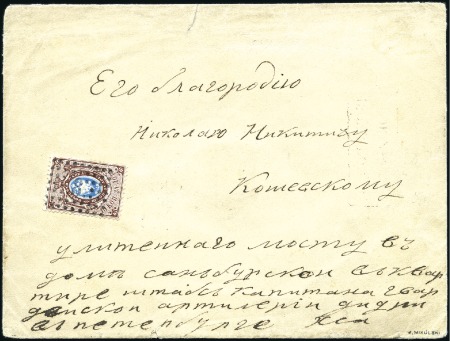 Его благородію
Николаю Никитичу
Кошевскому
улитеннаго мосту въ
домъ санбурской въ квар
тире штабсъ капитана гвар
дейской артилеріи
в петенбурге
K. MIKULSKI